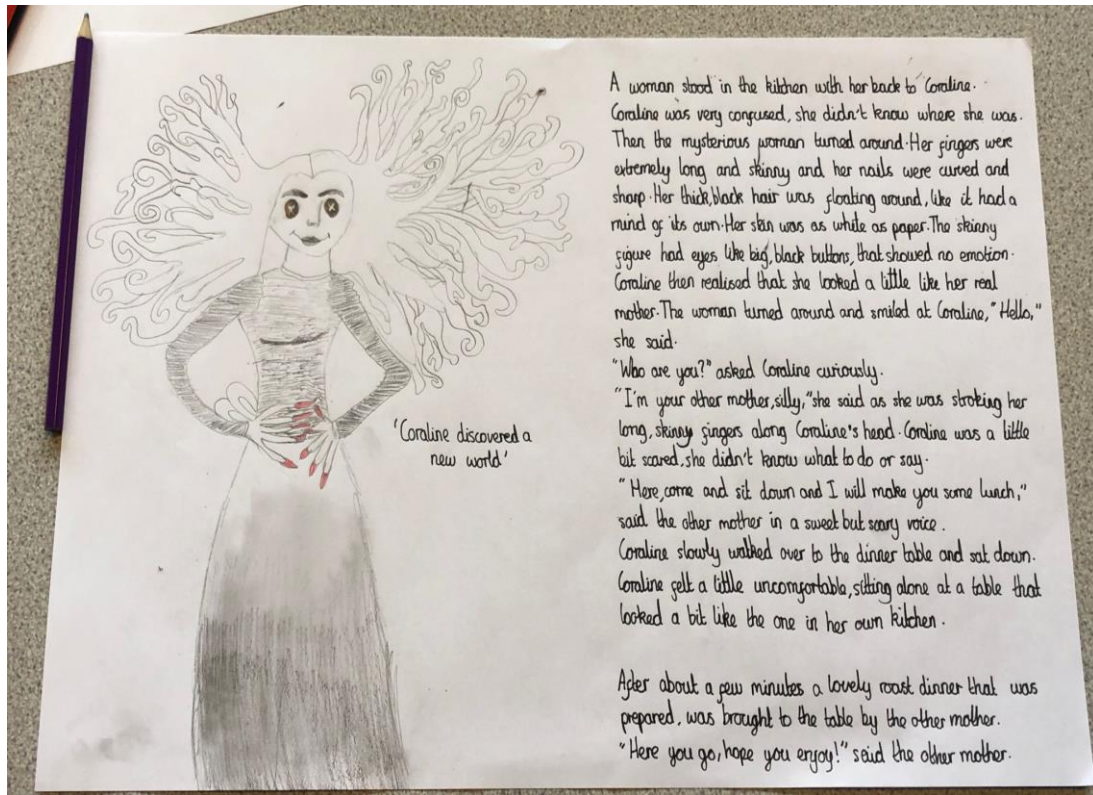 'Coraline discovered a
new world'
A woman stood in the kitchen with her back to Coraline.
Coraline was very confused, she didn't know where she was.
Then the mysterious woman turned around. Her fingers were
extremely long and skinny and her nails were curved and
sharp. Her thick, black hair was floating around, like it had a
mind of its own. Her skin was as white as paper. The skinny
figure had eyes like big, black buttons, that showed no emotion.
Coraline then realised that she looked a little like her real
mother. The woman turned around and smiled at Coraline, "Hello,"
she said.
"Who are you?" asked Coraline curiously.
"I'm your other mother, silly," she said as she was stroking her
long, skinny fingers along Coraline's head. Coraline was a little
bit scared, she didn't know what to do or say.
"Here, come and sit down and I will make you some lunch,"
said the other mother in a sweet but scary voice.
Coraline slowly walked over to the dinner table and sat down.
Coraline felt a little uncomfortable, sitting alone at a table that
looked a bit like the one in her own kitchen.
After about a few minutes a lovely roast dinner that was
prepared, was brought to the table by the other mother.
"Here you go, hope you enjoy!" said the other mother.